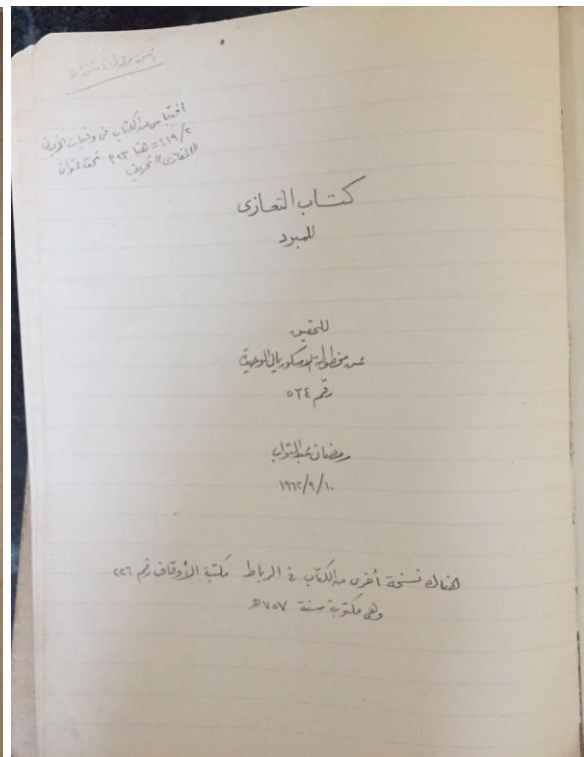 اقتباس من الكتاب في وفيات الأعيان
٦١٩/٢ = هنا ٢٠٣ تحت عنوان
"المغازى" تحريف
كتاب التعازى
للمبرد
للتحقيق
عن مخطوطة الاسكوريال الوحيدة
رقم ٥٣٤
رمضان عبد التواب
١٩٦٢/٩/١٠
هناك نسخة أخرى من الكتاب في الرباط مكتبة الأوقاف رقم ٢٢٦
وهى مكتوبة سنة ٧٥٧ هـ